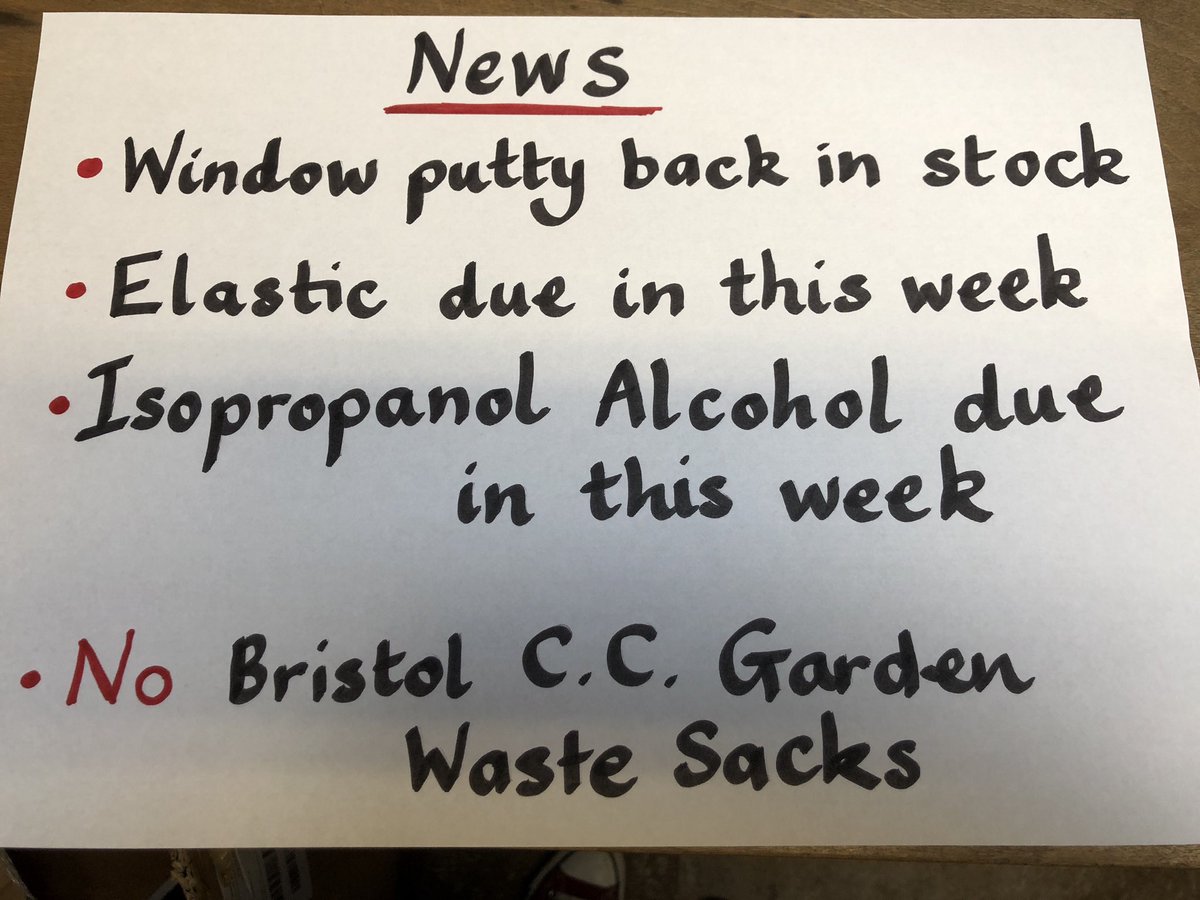 News
• Window putty back in stock
• Elastic due in this week
• Isopropanol Alcohol due
in this week
• No Bristol C.C. Garden
Waste Sacks